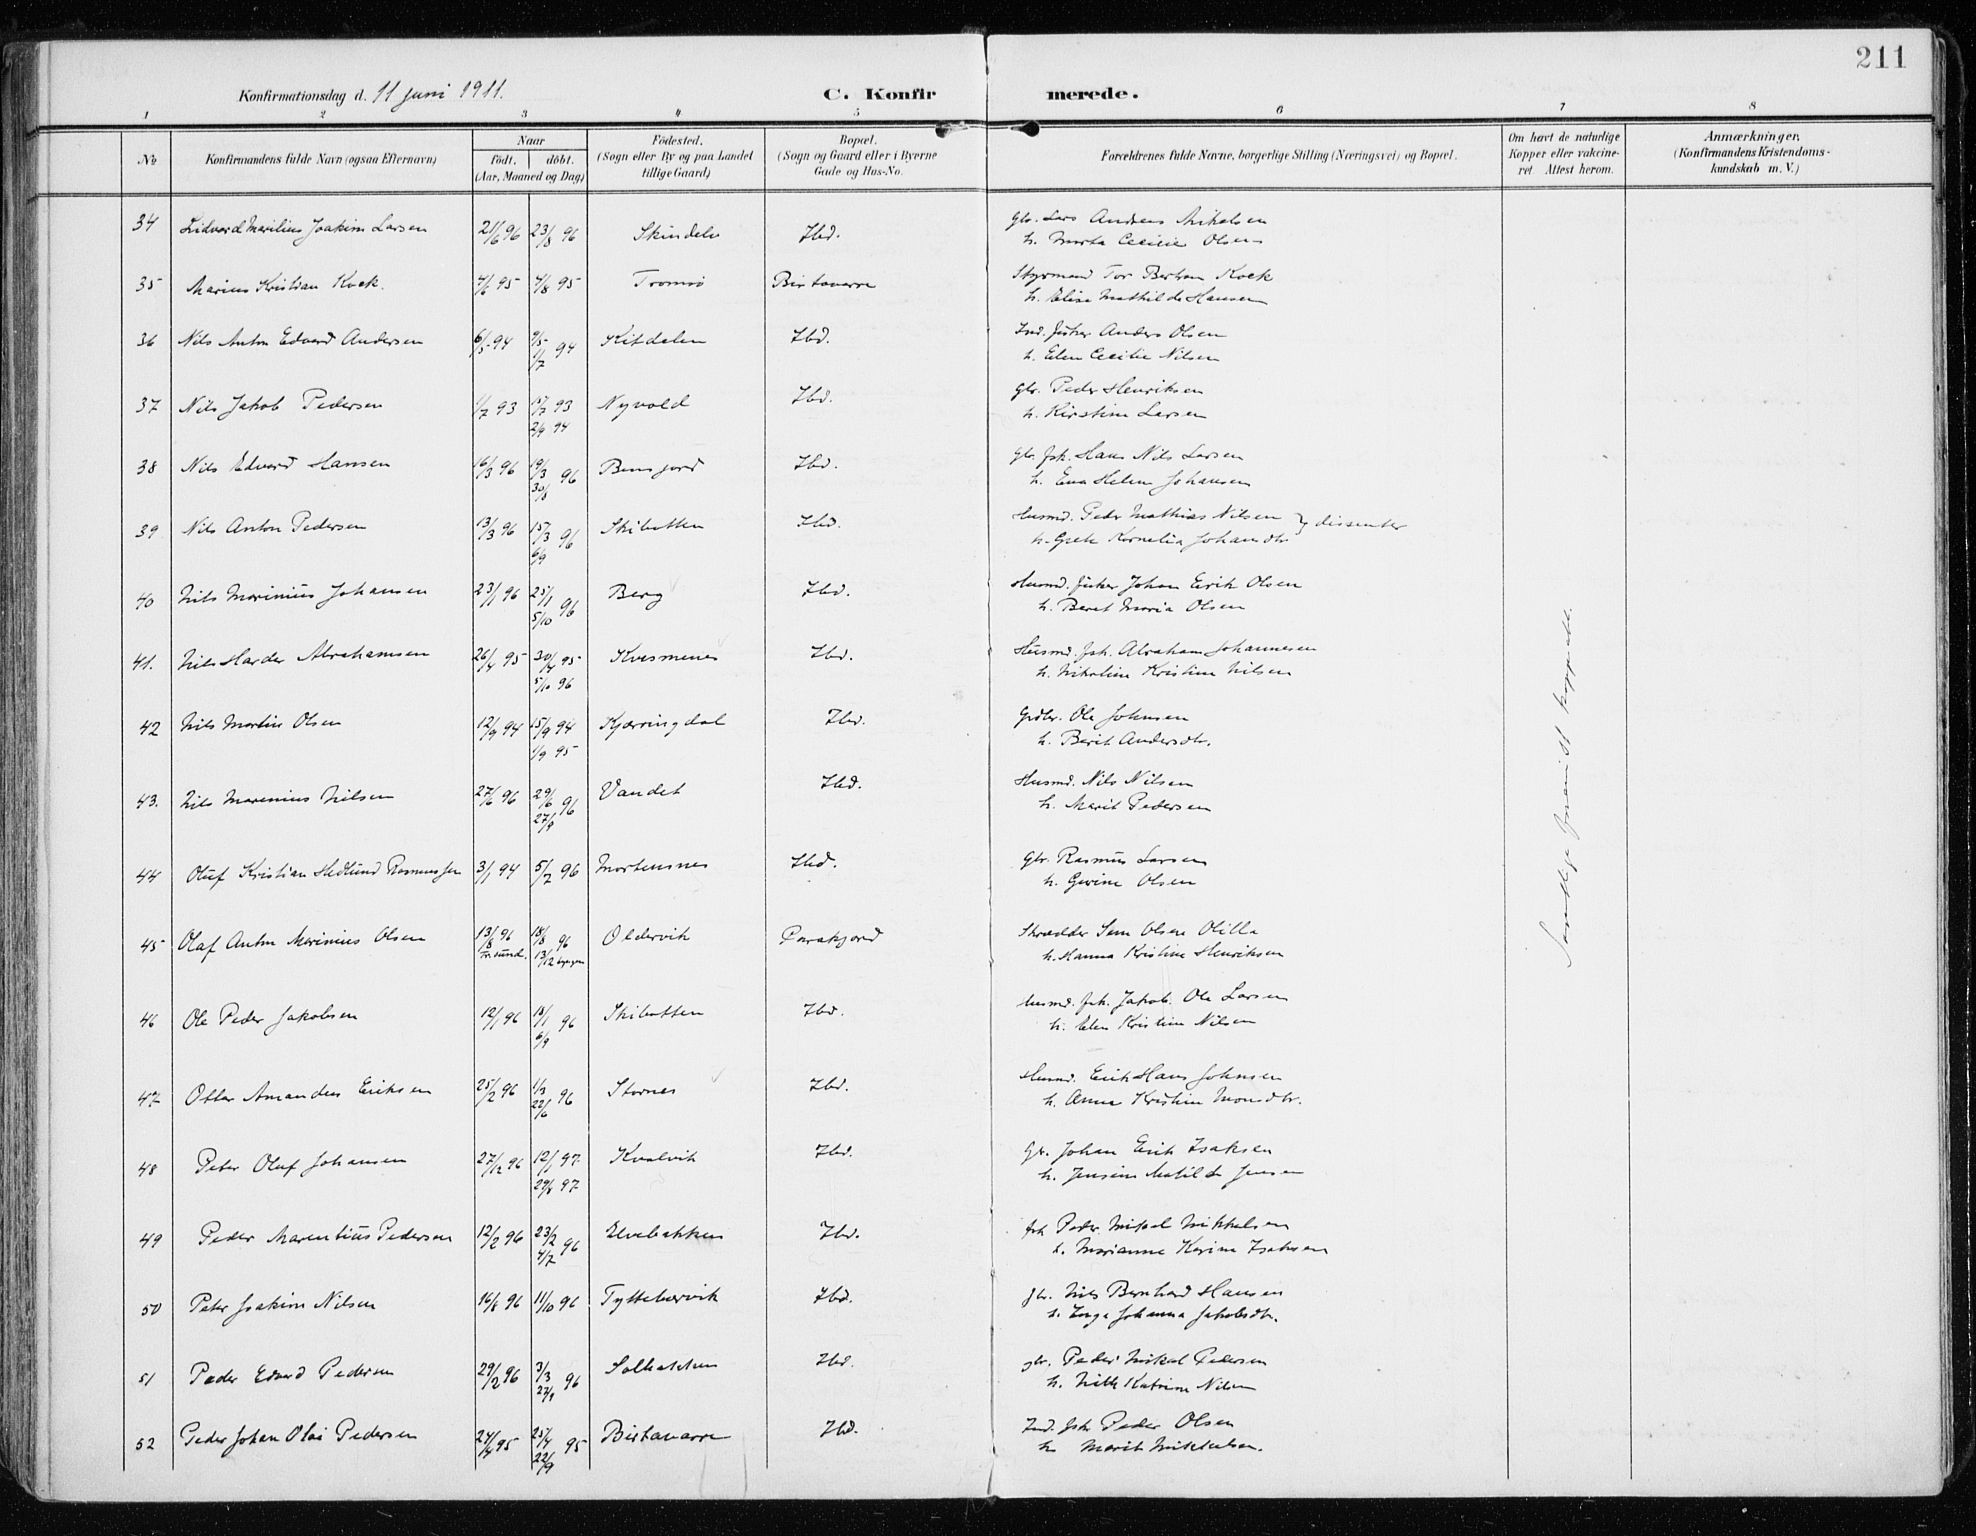 211
Konfirmationsdag d. 11 juni 1911.
C. Konfirmerede.
1 2 3 4 5 6 7 8
No
Konfirmandens fulde Navn (ogsaa Efternavn)
Naar
født. døbt.
(Aar, Maaned og Dag)
Fødested.
(Sogn eller By og paa Landet
tillige Gaard)
Bopæl.
(Sogn og Gaard eller i Byerne
Gade og Hus-No.
Forældrenes fulde Navne, borgerlige Stilling (Næringsvei) og Bopæl.
Om havt de naturlige
Kopper eller vakcine-
ret Attest herom.
Anmærkninger.
(Konfirmandens Kristendoms-
kundskab m. V.)
34 Marilius Joakim Larsen 21/6 96 23/8 96 Ibd. Gbr. Lars Andreas Mikelsen
h. Marta Cecilie Olsen
35 Marius Kristian Kock. 4/6 95 4/8 95 Tromsø Birtavarre Styrmand Tor Bertran Kock
h. Elise Mathilde Hansen
36 Nils Anton Edvard Andersen 6/5 94 9/5 94 Kitdalen Ibd. Ind. fisker Anders Olsen
1/7 h. Elen Cecilie Nilsen
37 Nils Jakob Pedersen 1/7 93 93 Nyvold Ibd. Gbr. Peder Henriksen
2/9 94 h. Kirstine Larsen
38 Nils Edvard Hansen 16/3 96 19/3 96 Bensjord Ibd. Gbr. fsk. Hans Nils Larsen
30/8 h. Eva Helene Johansen
39 Nils Anton Pedersen 13/3 96 15/3 96 Skibotten Ibd. Husmd. Peder Mathias Nilsen } dissenter
6/9 h. Grete Kornelia Johansdtr
40 Nils Marinius Johansen 23/1 96 25/1 96 Berg Ibd. Husmd. fisker Johan Erik Olsen
5/10 h. Beret Maria Olsen
41. Nils Harder Abrahamsen 26/4 95 30/4 95 Kvesmenes Ibd. Husmd. fsk. Abraham Johannesen
5/10 96 h. Nikoline Kristine Nilsen
42 Nils Martin Olsen 12/9 94 15/9 94 Kjærringdal Ibd. Grdbr. Ole Johnsen
1/9 95 h. Berit Andersdtr.
43. Nils Marenius Nilsen 27/6 96 29/6 96 Vandet Ibd. Husmd. Nils Nilsen
27/9 h. Marit Pedersen
44 Oluf Kristian Hedlund Rasmussen 3/1 94 5/2 96 Mortensnes Ibd. Gbr. Rasmus Larsen
h. Olsen
45 Olaf Anton Marinius Olsen 13/8 96 18/8 96 Oldervik Skrædder Olsen
13/12 h. Hanna Kristine Henriksen
46 Ole Peder Jakobsen 12/1 96 18/1 96 Skibotten Ibd. Husmd. fsk. Jakob Ole Larsen
6/9 h. Elen Kristine Nilsen
47 Otter Amandus Eriksen 25/2 96 1/3 96 Stornes Ibd. Husmd. Erik Hans Johnsen
22/6 h. Anna Kristine Monsdtr.
48 Peter Oluf Johansen 27/12 96 12/1 97 Kvalvik Ibd. Gbr. Johan Erik Isaksen
29/8 97 h. Jensine Matilde Jensen
49 Peder Marentius Pedersen 12/2 96 23/2 96 Elvebakken Ibd. fsk Peder Mikal Mikkelsen
4/7 h. Marianne Karine Isaksen
50 Peter Joakim Nilsen 16/8 96 11/10 96 Tyttebærvik Ibd. gbr. Nils Bernhard Hansen
h. Inga Johanna Jakobsdtr.
51 Peder Edvard Pedersen 29/2 96 3/3 96 Solbakken Ibd. gbr. Peder Mikal Pedersen
h. Katrine Nilsen
52 Peder Johan Olai Pedersen 24/4 95 25/4 95 Birtavarre Ibd. Ind. fsk Peder Olsen
22/9 h. Marit Mikkelsen.
Samtlige